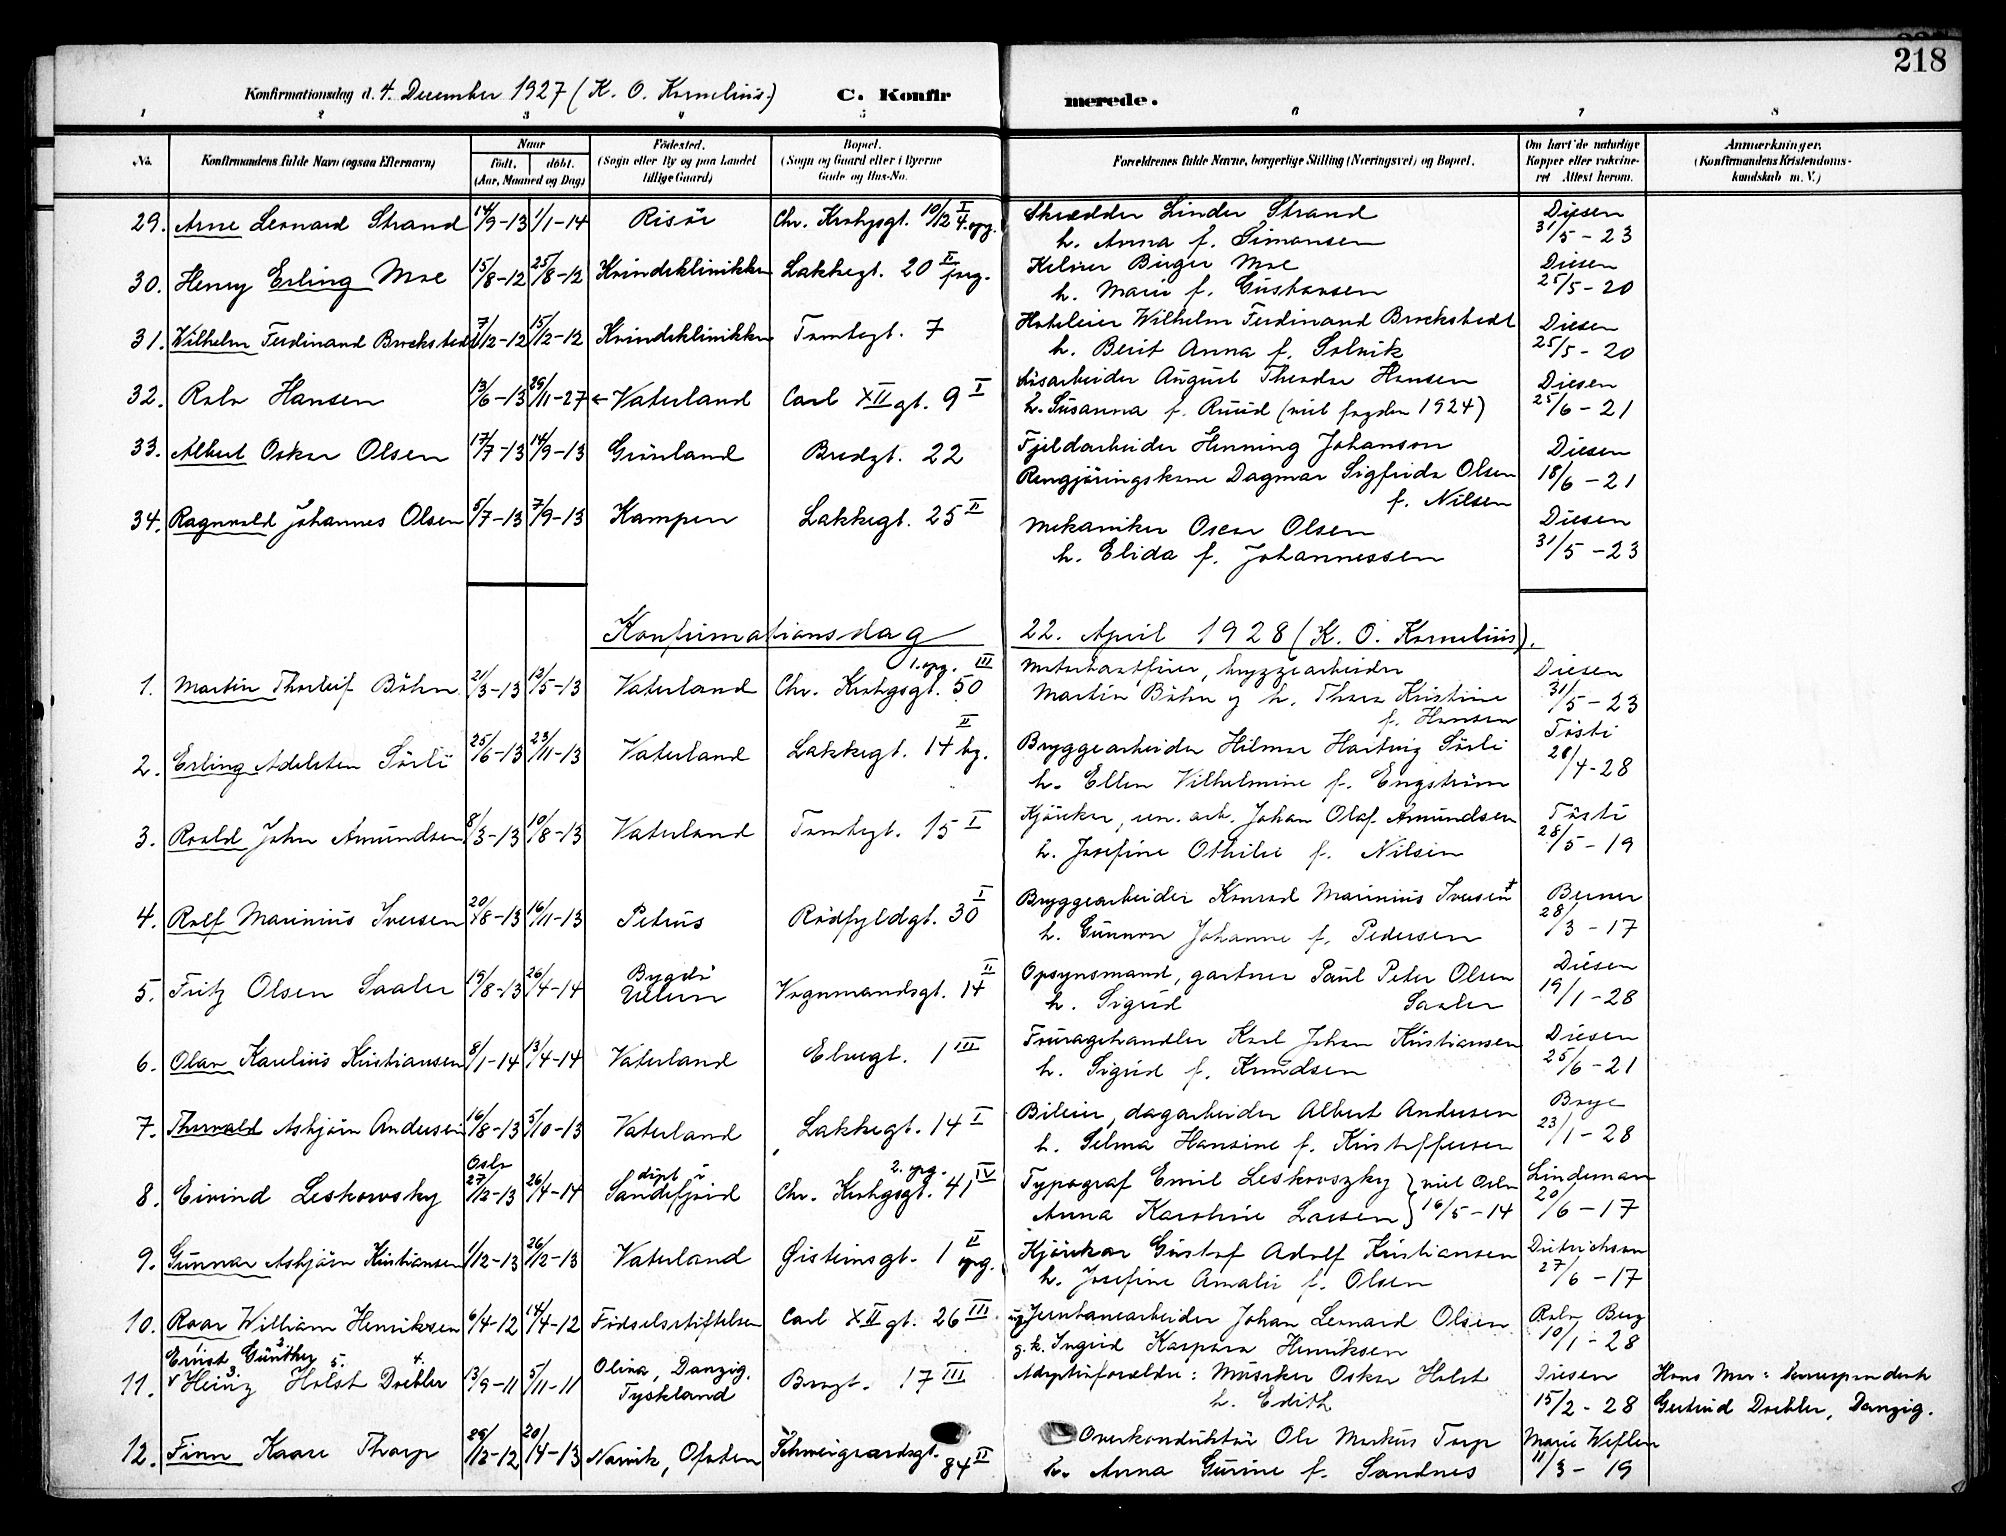 218
Konfirmationsdag d. 4. December 1927 (K. O. Kornelius.) C. Konfir merede.
1 2 3 4 5 6 7 8
No. Konfirmandens fulde Navn (ogsaa Efternavn) Naar født, døbt. (Aar, Maaned og Dag) Fødested. (Sogn eller By og paa Landet tillige Gaard) Bopæl. (Sogn og Gaard eller i Byerne Gade og Hus-No. Forældrenes fulde Navne, borgerlige Stilling (Næringsvei) og Bopæl. Om havt de naturlige Kopper eller vakcineret Attest herom. Anmærkninger. (Konfirmandens Kristendomskundskab m. V.)
29. Arne Leonard Strand 14/9-13 1/1-14 Risör Chr. Krohgsgt. 10/12 I 4. opg. Skrædder Linder Strand Diesen
h. Anna f. Simonsen 31/5-23
30. Henry Erling Moe 15/8-12 25/8-12 Kvindeklinikken Lakkegt. 20 II Kelner Birger Moe Diesen
h. Marie f. Gustavsen 25/5-20
31. Wilhelm Ferdinand Brockstedt 7/12-12 15/12-12 Kvindeklinikken Tomtegt. 7 Hoteleier Wilhelm Ferdinand Brockstedt Diesen
h. Berit Anna f. Solvik 25/5-20
32. Rolv Hansen 13/6-13 29/11-27 Vaterland Carl XII gt. 9 I Løsarbeider August Theodor Hansen Diesen
h. Susanna f. Ruud 1924) 25/6-21
33. Albert Oskar Olsen 17/7-13 14/9-13 Grönland Bredgt. 22 Fjeldarbeider Henning Johanson Diesen
Rengjöringskone Dagmar Sigfrida Olsen 18/6-21
f. Nilsen
34. Ragnvald Johannes Olsen 5/7-13 7/9-13 Kampen Lakkegt. 25 II Mekaniker Oscar Olsen Diesen
h. Elida f. Johannessen 31/5-23
Konfirmationsdag 22. April 1928 (K. O. Kornelius).
1. Martin Thorleif Böhn 21/3-13 13/5-13 Vaterland Chr. Krohgsgt. 50 1. opg. III Motorbaatfører, bryggearbeider Diesen
Martin Böhn og h. Thora Kristine 31/5-23
f. Hansen
2. Erling Adelsten Sörli 25/6-13 23/11-13 Vaterland Lakkegt. 14 II bg. Bryggearbeider Hilmar Hartvig Sörli Tösti
h. Ellen Vilhelmine f. Engström 28/4-28
3. Roald John Amundsen 8/3-13 10/8-13 Vaterland Tomtegt. 15 I Kjörer, ren. arb. Johan Olaf Amundsen Tösti
h. Josefine Othilie f. Nilsen 28/5-19
4. Rolf Marinius Iversen 20/8-13 16/11-13 Petrus Rödfyldgt. 30 I Bryggearbeider Konrad Marinius Iversen + Berner
h. Gunnor Johanne f. Pedersen 28/3-17
5. Fritz Olsen Saaler 19/8-13 26/4-14 Bygdö Ullern Vognmandsgt. 14 II Opsynsmand, gartner Paul Peter Olsen Diesen
h. Sigrid Saaler 19/1-28
6. Olav Karelius Kristiansen 8/1-14 13/4-14 Vaterland Elvegt. 1 III Fouragehandler Karl Johan Kristiansen Diesen
h. Sigrid f. Knudsen 25/6-21
7. Thorvald Asbjörn Andersen 16/8-13 5/10-13 Vaterland Lakkegt. 14 I Bileier, dagarbeider Albert Andersen Borge
h. Selma Hansine f. Kristoffersen 23/1-28
8. Eivind Leskowsky Oslo 27/12-13 26/4-14 döpt i Sandefjord Chr. Krohgsgt. 41 2. opg. IV Typograf Emil Leskovszky } viet Oslo Lindeman
Anna Karoline Larsen } 16/5-14 20/6-17
9. Gunnar Asbjörn Kristiansen 1/12-13 26/12-13 Vaterland Øisteinsgt. 1 II opg. Kjörekar Gustaf Adolf Kristiansen Dietrichson
h. Josefine Amalie f. Olsen 27/6-17
10. Roar William Henriksen 6/4-12 14/4-12 Födselsstiftelsen Carl XII gt. 26 III ug. Jernbanearbeider Johan Leonard Olsen Rolv Berg
g. k. Ingrid Kaspara Henriksen 10/1-28
Ernst Günther
11. Heinz Holst Doebler 13/9-11 5/11-11 Oliva, Danzig, Tyskland Brogt. 17 III Adoptivforældre: Musiker Oskar Holst Diesen Hans Mor: korrespondent
h. Edith 15/2-28 Gertrud Doebler, Danzig.
12. Finn Kaare Thorp 29/12-12 20/4-13 Narvik, Ofoten Schweigaardsgt. 84 II Overkonduktör Ole Markus Torp Marie Weflen
h. Anna Gurine f. Sandnes 11/3-19